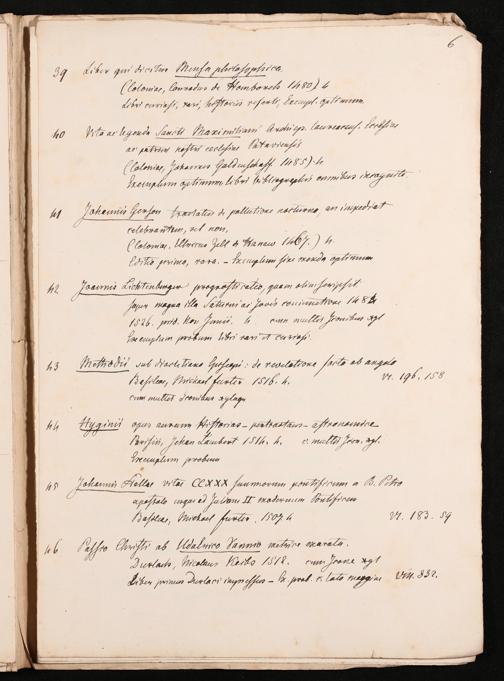 6
39 Liber qui dicitur Mensa philosophica
(Coloniae, Conradus de Homborch 1480) 4
Libri curiosi, rari, historiis referti, Exempl. optimum
40 Vita ac legenda Sancti Maximiliani Archiep. Laureacens. Ecclesiae
ac patroni nostri ecclesiae Pataviensis
(Coloniae, Johannes Guldenschaff. 1485) 4
Exemplum optimum libri bibliographis omnibus incogniti
41 Johannis Gerson tractatus de pollutione nocturna, an impediat
celebrantem, vel non.
(Coloniae, Ulricus Zell de Hanau 1467.) 4
Editio princ., rara. - Exemplum sine menda optimum
42 Joannis Lichtenberger prognosticatio, quam olim scripsit
super magna illa Saturni ac Jovis coniunctione 1484
1526. Junii. 4 cum multis Iconibus xyl
Exemplum probum libri rari et curiosi
43 Methodii sub Diocletiano : de revelatione facta ab angelo
Basileae, Michael furter 1516. 4. VI. 196, 158
cum multis iconibus xylogr
44 Hyginii opus aureum Historias - pertractans - astronomica
Parisiis, Jehan Lambert 1514. 4. c. multis Icon. xyl.
Exemplum probum
45 Johannis Stellae vitae CCXXX summorum pontificum a B. Petro
apostolo usque ad Julium II modernum Pontificem
Basileae, Michael furter, 1507 4 VI. 183. 59
46 Passio Christi ab Udalrico Vannio metrice exarata.
Durlach, Nicolaus Keibs 1512. cum Icone xyl
Liber primus Durlaci impressus - Ex. prob. c. lato margine VIII. 332.